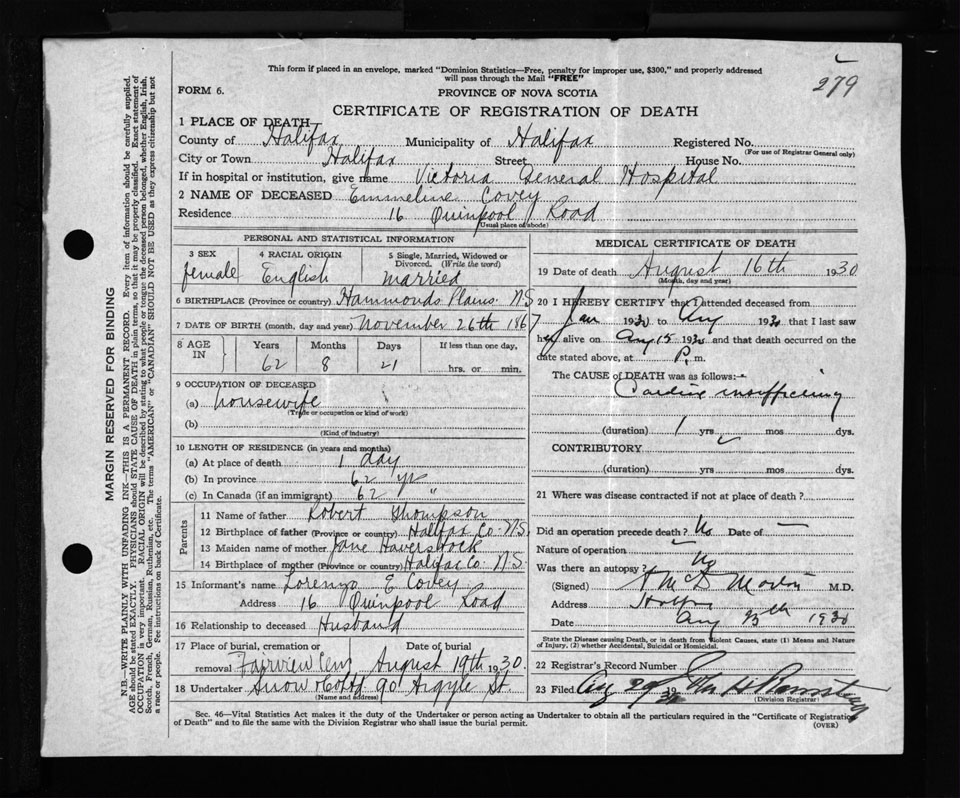 279
This form if placed in an envelope, marked "Dominion Statistics—Free, penalty for improper use, $300," and properly addressed
will pass through the Mail "FREE"
FORM 6.
PROVINCE OF NOVA SCOTIA
CERTIFICATE OF REGISTRATION OF DEATH
1 PLACE OF DEATH
County of Halifax Municipality of Halifax Registered No.
(For use of Registrar General only)
City or Town Halifax Street House No.
If in hospital or institution, give name Victoria General Hospital
2 NAME OF DECEASED Emmeline Covey
Residence 16 Quinpool Road
(Usual place of abode)
PERSONAL AND STATISTICAL INFORMATION
3 SEX 4 RACIAL ORIGIN 5 Single, Married, Widowed or
Divorced. (Write the word)
female English married
6 BIRTHPLACE (Province or country) Hammonds Plains N.S
7 DATE OF BIRTH (month, day and year) November 26th 1867
8 AGE IN Years Months Days If less than one day,
62 8 21 hrs. or min.
9 OCCUPATION OF DECEASED
(a) housewife
(Trade or occupation or kind of work)
(b)
(Kind of industry)
10 LENGTH OF RESIDENCE (in years and months)
(a) At place of death 1 day
(b) In province 62 yr
(c) In Canada (if an immigrant) 62 "
Parents
11 Name of father Robert Thompson
12 Birthplace of father (Province or country) Halifax Co. N.S.
13 Maiden name of mother Jane Haverstock
14 Birthplace of mother (Province or country) Halifax Co. N.S.
15 Informant's name Lorenzo E Covey
Address 16 Quinpool Road
16 Relationship to deceased Husband
17 Place of burial, cremation or Date of burial
removal Fairview Cem August 19th 1930.
18 Undertaker Snow & Co Ltd 90 Argyle St.
(Name and address)
MEDICAL CERTIFICATE OF DEATH
19 Date of death August 16th 1930
(Month, day and year)
20 I HEREBY CERTIFY that I attended deceased from
Jan 1930 to Aug 1930 that I last saw
her alive on Aug 15 1930 and that death occurred on the
date stated above, at P. m.
The CAUSE of DEATH was as follows:
Cardiac insufficiency
(duration) 1 yrs mos dys.
CONTRIBUTORY
(duration) yrs mos dys.
21 Where was disease contracted if not at place of death?
Did an operation precede death? No Date of —
Nature of operation —
Was there an autopsy? No
(Signed) M.D.
Address Halifax
Date Aug 1930
State the Disease causing Death, or in death from Violent Causes, state (1) Means and Nature
of Injury, (2) whether Accidental, Suicidal or Homicidal.
22 Registrar's Record Number
23 Filed Aug
(Division Registrar)
Sec. 46—Vital Statistics Act makes it the duty of the Undertaker or person acting as Undertaker to obtain all the particulars required in the "Certificate of Registration
of Death" and to file the same with the Division Registrar who shall issue the burial permit.
(OVER)
MARGIN RESERVED FOR BINDING
N.B.—WRITE PLAINLY WITH UNFADING INK—THIS IS A PERMANENT RECORD. Every item of information should be carefully supplied.
AGE should be stated EXACTLY. PHYSICIANS should STATE CAUSE OF DEATH in plain terms, so that it may be properly classified. Exact statement of
OCCUPATION is very important. RACIAL ORIGIN will be described by stating to what people or tongue the deceased person belonged, whether English, Irish,
Scotch, French, German, Russian, Ruthenian, etc. The terms "AMERICAN" or "CANADIAN" SHOULD NOT BE USED as they express citizenship but not
a race or people. See instructions on back of Certificate.